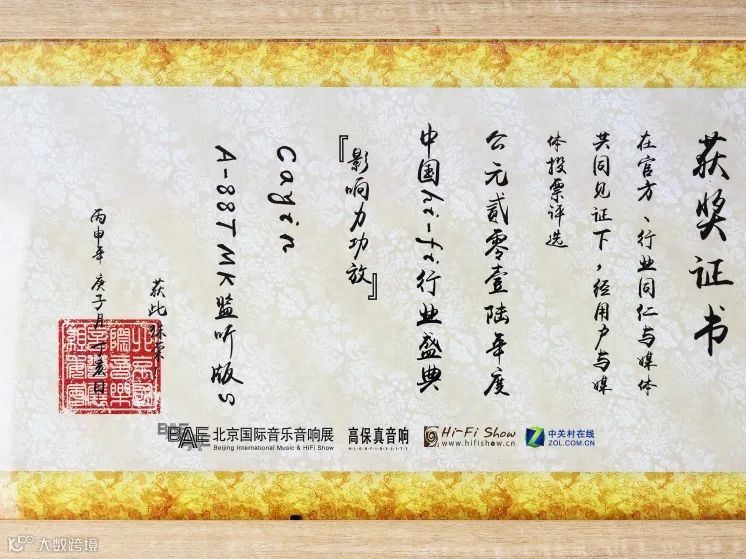 获奖证书
在官方、行业同仁与媒体
共同见证下，经用户与媒
体投票评选
公元贰零壹陆年度
中国hi-fi行业盛典
『影响力功放』
Cayin
A-88T MK监听版
获此殊荣
丙申年 庚子月 丁亥日
BIAE 北京国际音乐音响展
Beijing International Music & HiFi Show
高保真音响
HIGHFIDELITY
Hi-Fi Show
www.hifishow.cn
Z 中关村在线
ZOL.COM.CN
大数跨境